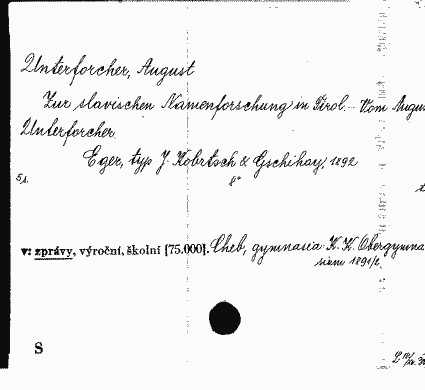 Unterforcher, August
Zur slavischen Namenforschung in Tirol. - Vom Augus
Unterforcher.
Eger, typ J. Kobrtsch & Gschihay, 1892
5 s. 8°
v: zprávy, výroční, školní [75.000]. Cheb, gymnasia K. K. Obergymna
sium 1891/2
S